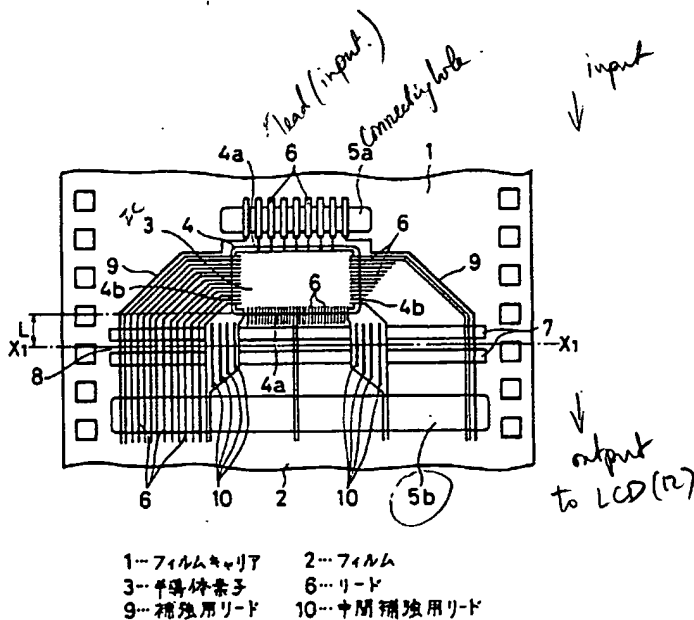 lead (input)
connecting hole
input
4a 6 5a 1
IC
3 4 6
9 9
4b 6 4b
L
X1 X1
8 4a 7
6 10 2 10 5b
output
to LCD (12)
1…フィルムキャリア 2…フィルム
3…半導体素子 6…リード
9…補強用リード 10…中間補強用リード